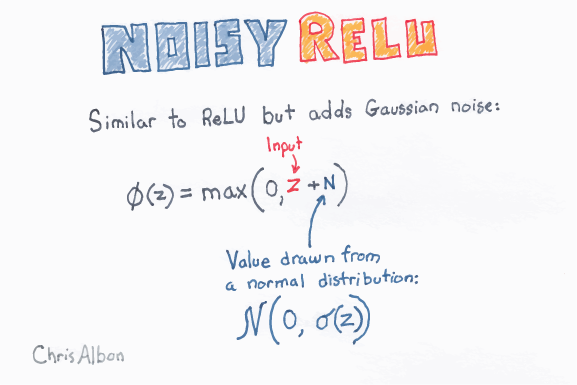 NOISY RELU
Similar to ReLU but adds Gaussian noise:
Input
ϕ(z) = max(0, z + N)
Value drawn from
a normal distribution:
𝒩(0, σ(z))
Chris Albon